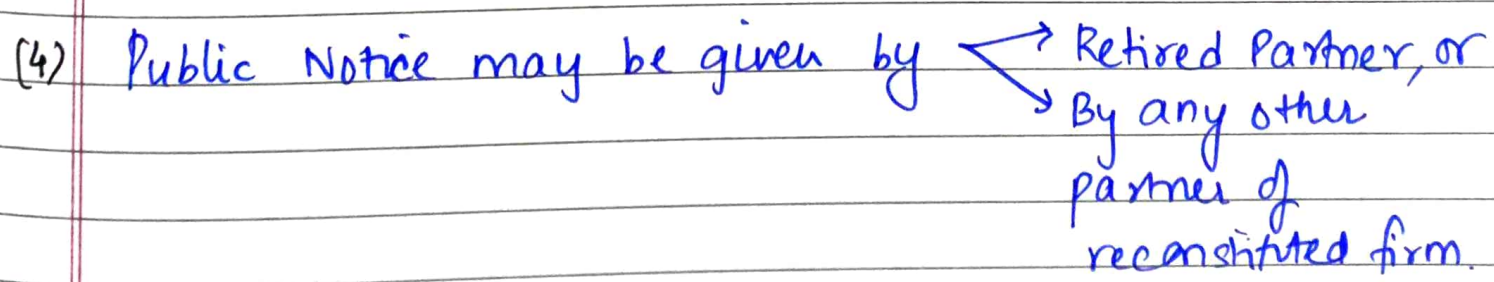 (4) Public Notice may be given by → Retired Partner, or
→ By any other
partner of
reconstituted firm.